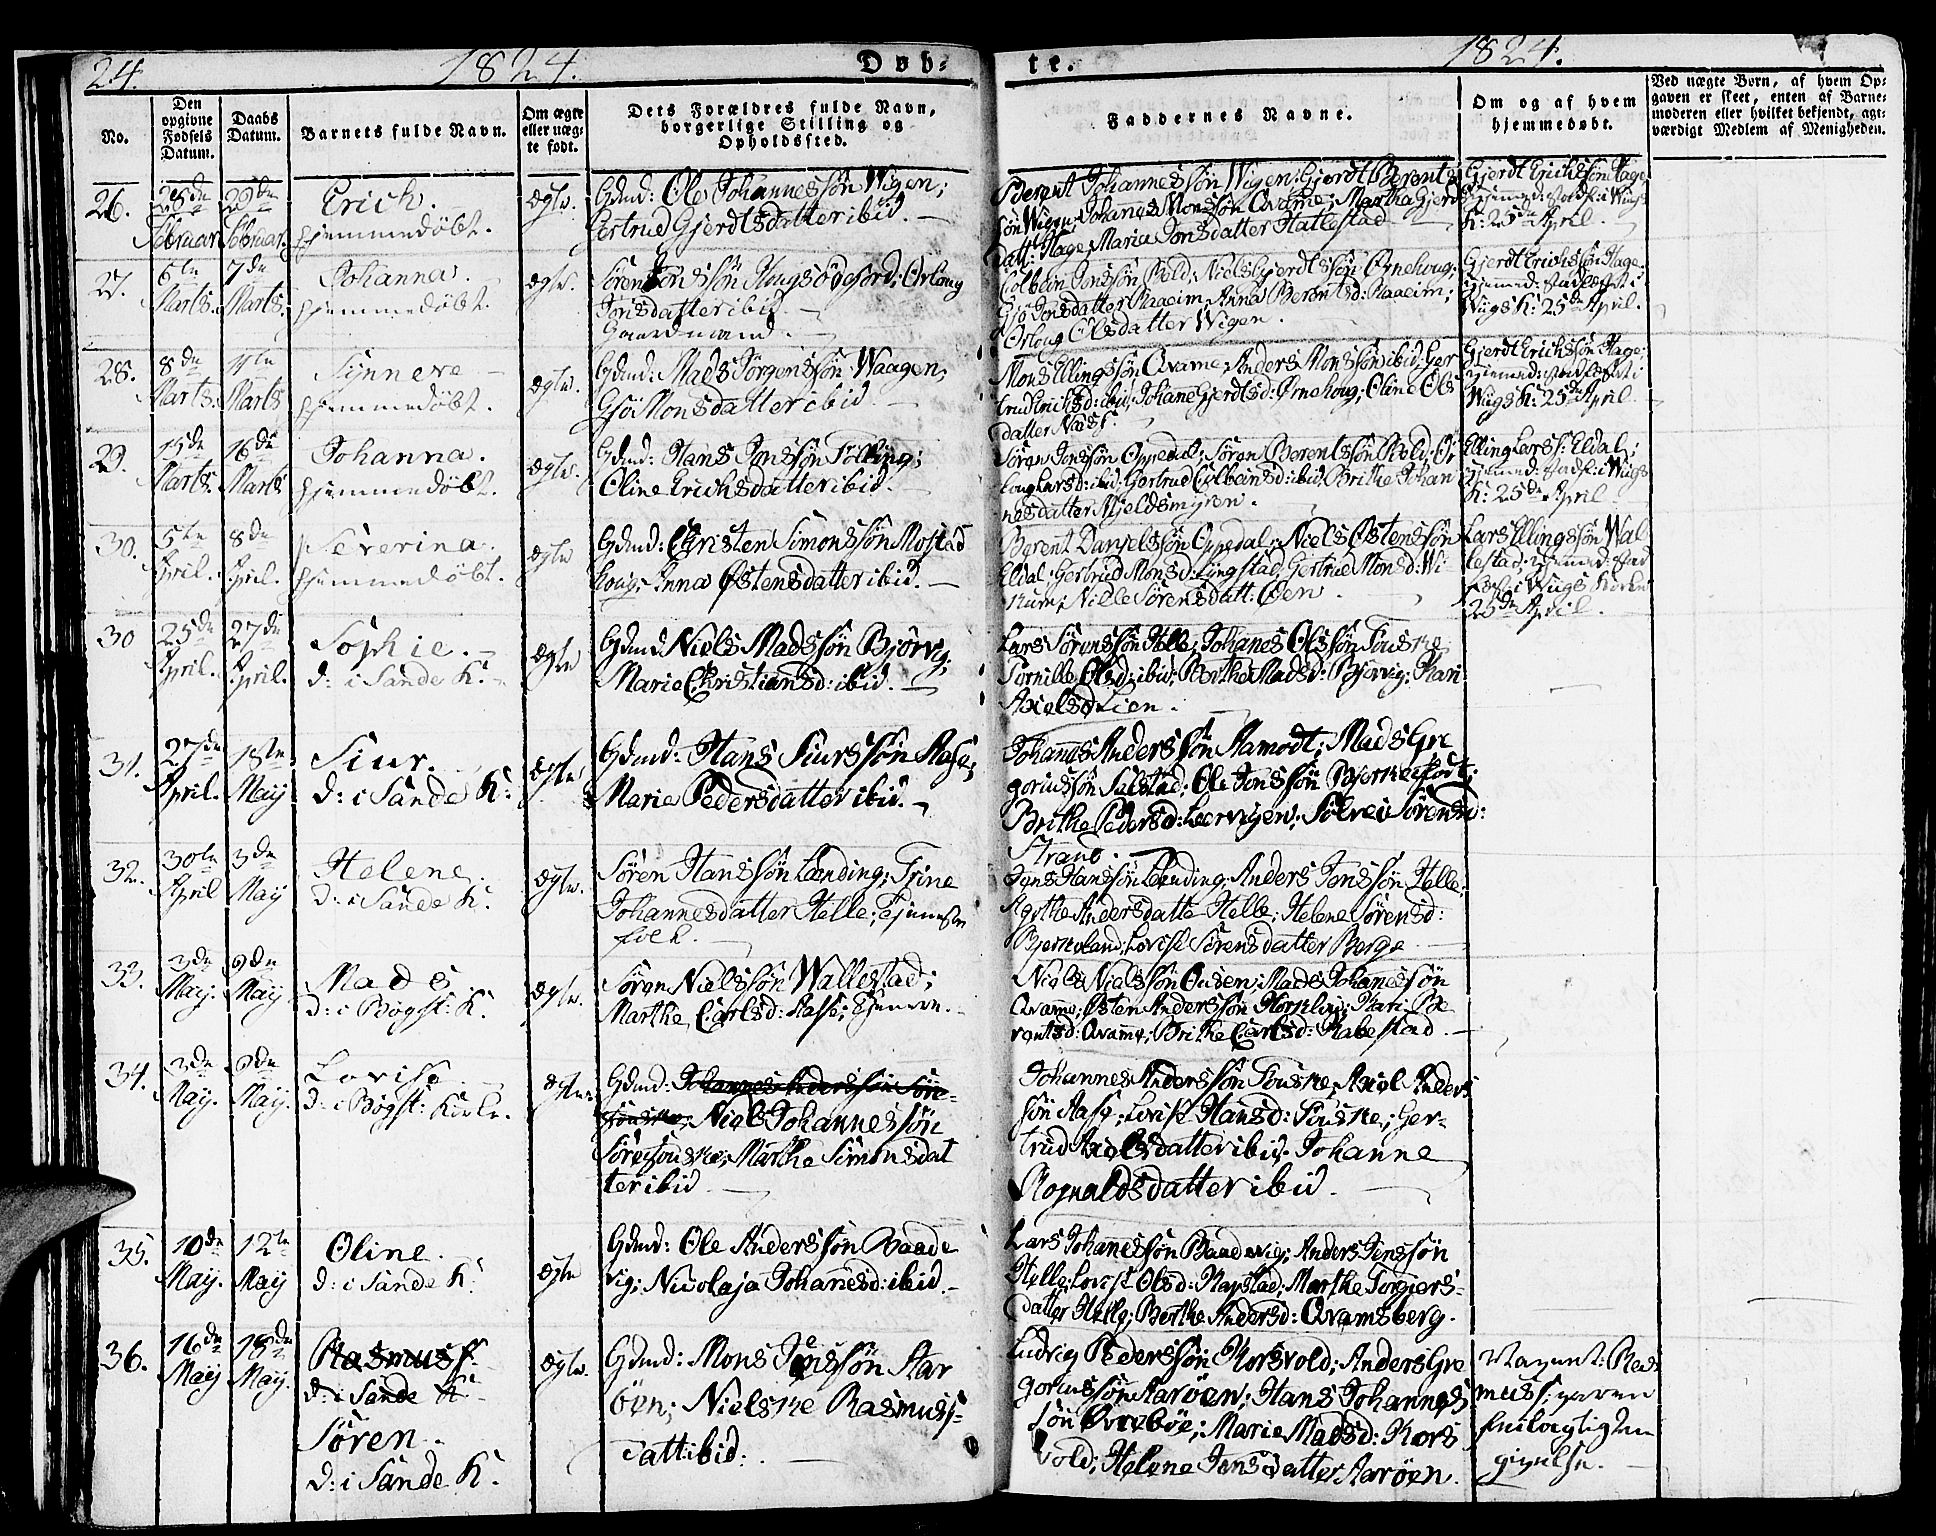 24.
1824.
Døb-
te.
1824.
No.
Den opgivne Fødsels Datum.
Daabs Datum.
Barnets fulde Navn.
Om ægte eller uægte født.
Dets Forældres fulde Navn, borgerlige Stilling og Opholdssted.
Faddernes Navne.
Om og af hvem hjemmedøbt.
Ved uægte Børn, af hvem Opgaven er skeet, enten af Barnemoderen eller hvilket bekjendt, agtværdigt Medlem af Menigheden.
26.
28de Februar
29de Februar.
Erich.
hjemmedøbt.
ægte.
Gdmd: Ole Johannessøn Wigen;
Gertrud Gjerdtsdatter ibid.
Berent Johannessøn Wigen; Gjerdt Berents
søn Wigen; Johanes Monssøn Qvame; Martha Gjerds
datt: Hage; Maria Jonsdatter Hattestad
Gjerdt Erichssøn Hage;
K: 25de April.
27.
6te Marts.
7de Marts.
Johanna.
hjemmedøbt.
ægte.
Søren Jonssøn; Orloug
Jonsdatter ibid.
Gaardmand.
Colbein Jonssøn Bold; Niels Gjerdtssøn Ørnehoug;
Gjø Jonsdatter Raaeim; Anna Berentsd: Raaeim;
Orloug Olsdatter Wigen.
Gjerdt Erichssøn Hage.
Wiigs K: 25de April.
28.
8de Marts.
11te Marts
Synneve
hjemmedøbt.
ægte.
Gdmd: Mads Jørgenssøn Waagen;
Gjøi Monsdatter ibid.
Mons Ellingssøn Qvame; Anders Monssøn ibid; Ger
trud Erichsd: ibid; Johane Gjerdtsd: Ørnehoug; Oline Ols
datter Næss.
Gjerdt Erichssøn Hage;
Wiigs K: 25de April
29.
15de Marts.
16de Marts
Johanna.
hjemmedøbt.
ægte.
Gdmd: Hans Jonssøn;
Oline Erichsdatter ibid.
Søren Jonssøn Oppedal; Søren Berentssøn Bold; Or
loug Larsd: ibid; Gertrud Colbeinsd: ibid; Brithe Johan
nesdatter Mjeldsmyren.
Elling Larss: Eldal;
K: 25de April
30.
5te April.
8de April.
Severina.
hjemmedøbt.
ægte
Gdmd: Christen Simonssøn Mostad
houg; Anna Østensdatter ibid.
Berent Danielssøn Oppedal; Niels Østenssøn
Eldal; Gertrud Monsd: Lyngstad; Gertrud Monsd: Wi
; Nille Sørensdatt: Øen.
Lars Ellingssøn Wal
lestad;
i Wiigs Kirke
25de April.
30
25de April.
27de April.
Sophie.
d: i Sande K.
ægte
Gdmd. Niels Madssøn Bjørvig;
Marie Christiansd: ibid.
Lars Sørenssøn Helle; Johanes Olssøn Fouske;
Pernille Olsd: ibid; Berthe Madsd: Bjørvig; Kari
Axelsd Lien.
31.
27de April.
18te May
Siur.
D: i Sande K:
ægte
Gdmd: Hans Siurssøn Aase;
Marie Pedersdatter ibid.
Johanes Anderssøn Aamodt; Mads Gre
goriussøn Salstad; Ole Jonssøn;
Brithe Pedersd: Leervigen; Sølvei Sørensd:
Strand.
32.
30te April
3de May
Helene.
D: i Sande K.
ægte.
Søren Hanssøn Lænding; Trine
Johannesdatter Helle; Tjeneste
folk.
Jens Hanssøn Lænding; Anders Jonssøn Helle;
Agethe Andersdatte Helle; Helene Sørensd:
Bjerkeland; Lovise Sørensdatter Berge
33.
3de May.
9de May
Mads
D: i Bøgst: K.
ægte.
Søren Nielssøn Wallestad;
Marthe Carlsd: Aase; Tjenere.
Niels Nielssøn Ousen; Mads Johanessøn
Qvame; Østen Anderssøn; Kari Be
rentsd: Qvame; Brithe Carlsd: Rabestad.
34.
3de May.
9de May.
Lovise
D: i Bøgst: Kirke.
ægte.
Gdmd: Johannes Anderssøn Søre-
Fouske; Niels Johannessøn
Sørefouske; Marthe Simonsdat
ter ibid
Johannes Anderssøn Fouske; Axel Anders
søn Aase; Lovise Hansd: Fouske; Ger-
trud Axelsdatter ibid. Johanne
Rognaldsdatter ibid.
35.
10de May.
12te May
Oline.
D: i Sande K.
ægte
Gdmd: Ole Anderssøn Baade
vig; Nicolaja Johanesd: ibid.
Lars Johanessøn Baadevig; Anders Jenssøn
Helle; Lovise Olsd: Rapstad; Marthe Torgjers-
datter Helle; Berthe Andersd: Qvamsberg.
36.
16de May
18de May.
Rasmus
d: i Sande K
Søren.
D: i Sande K.
ægte.
Gdmd: Mons Jenssøn Aar
øen; Nielske Rasmus-
datt: ibid:
Ludvig Pederssøn Korsvold; Anders Gre
goriussøn Aarøen; Hans Johannes
søn Øvrebøe; Marie Madsd: Kors
vold; Helene Jensdatter Aarøen.
Navnet: Ras
mus